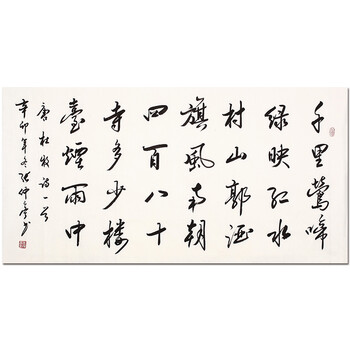 千里鶯啼
绿映红水
村山郭酒
旗風南朝
四百八十
寺多少楼
臺煙雨中
唐杜牧诗一首
辛卯年冬张仲亭书